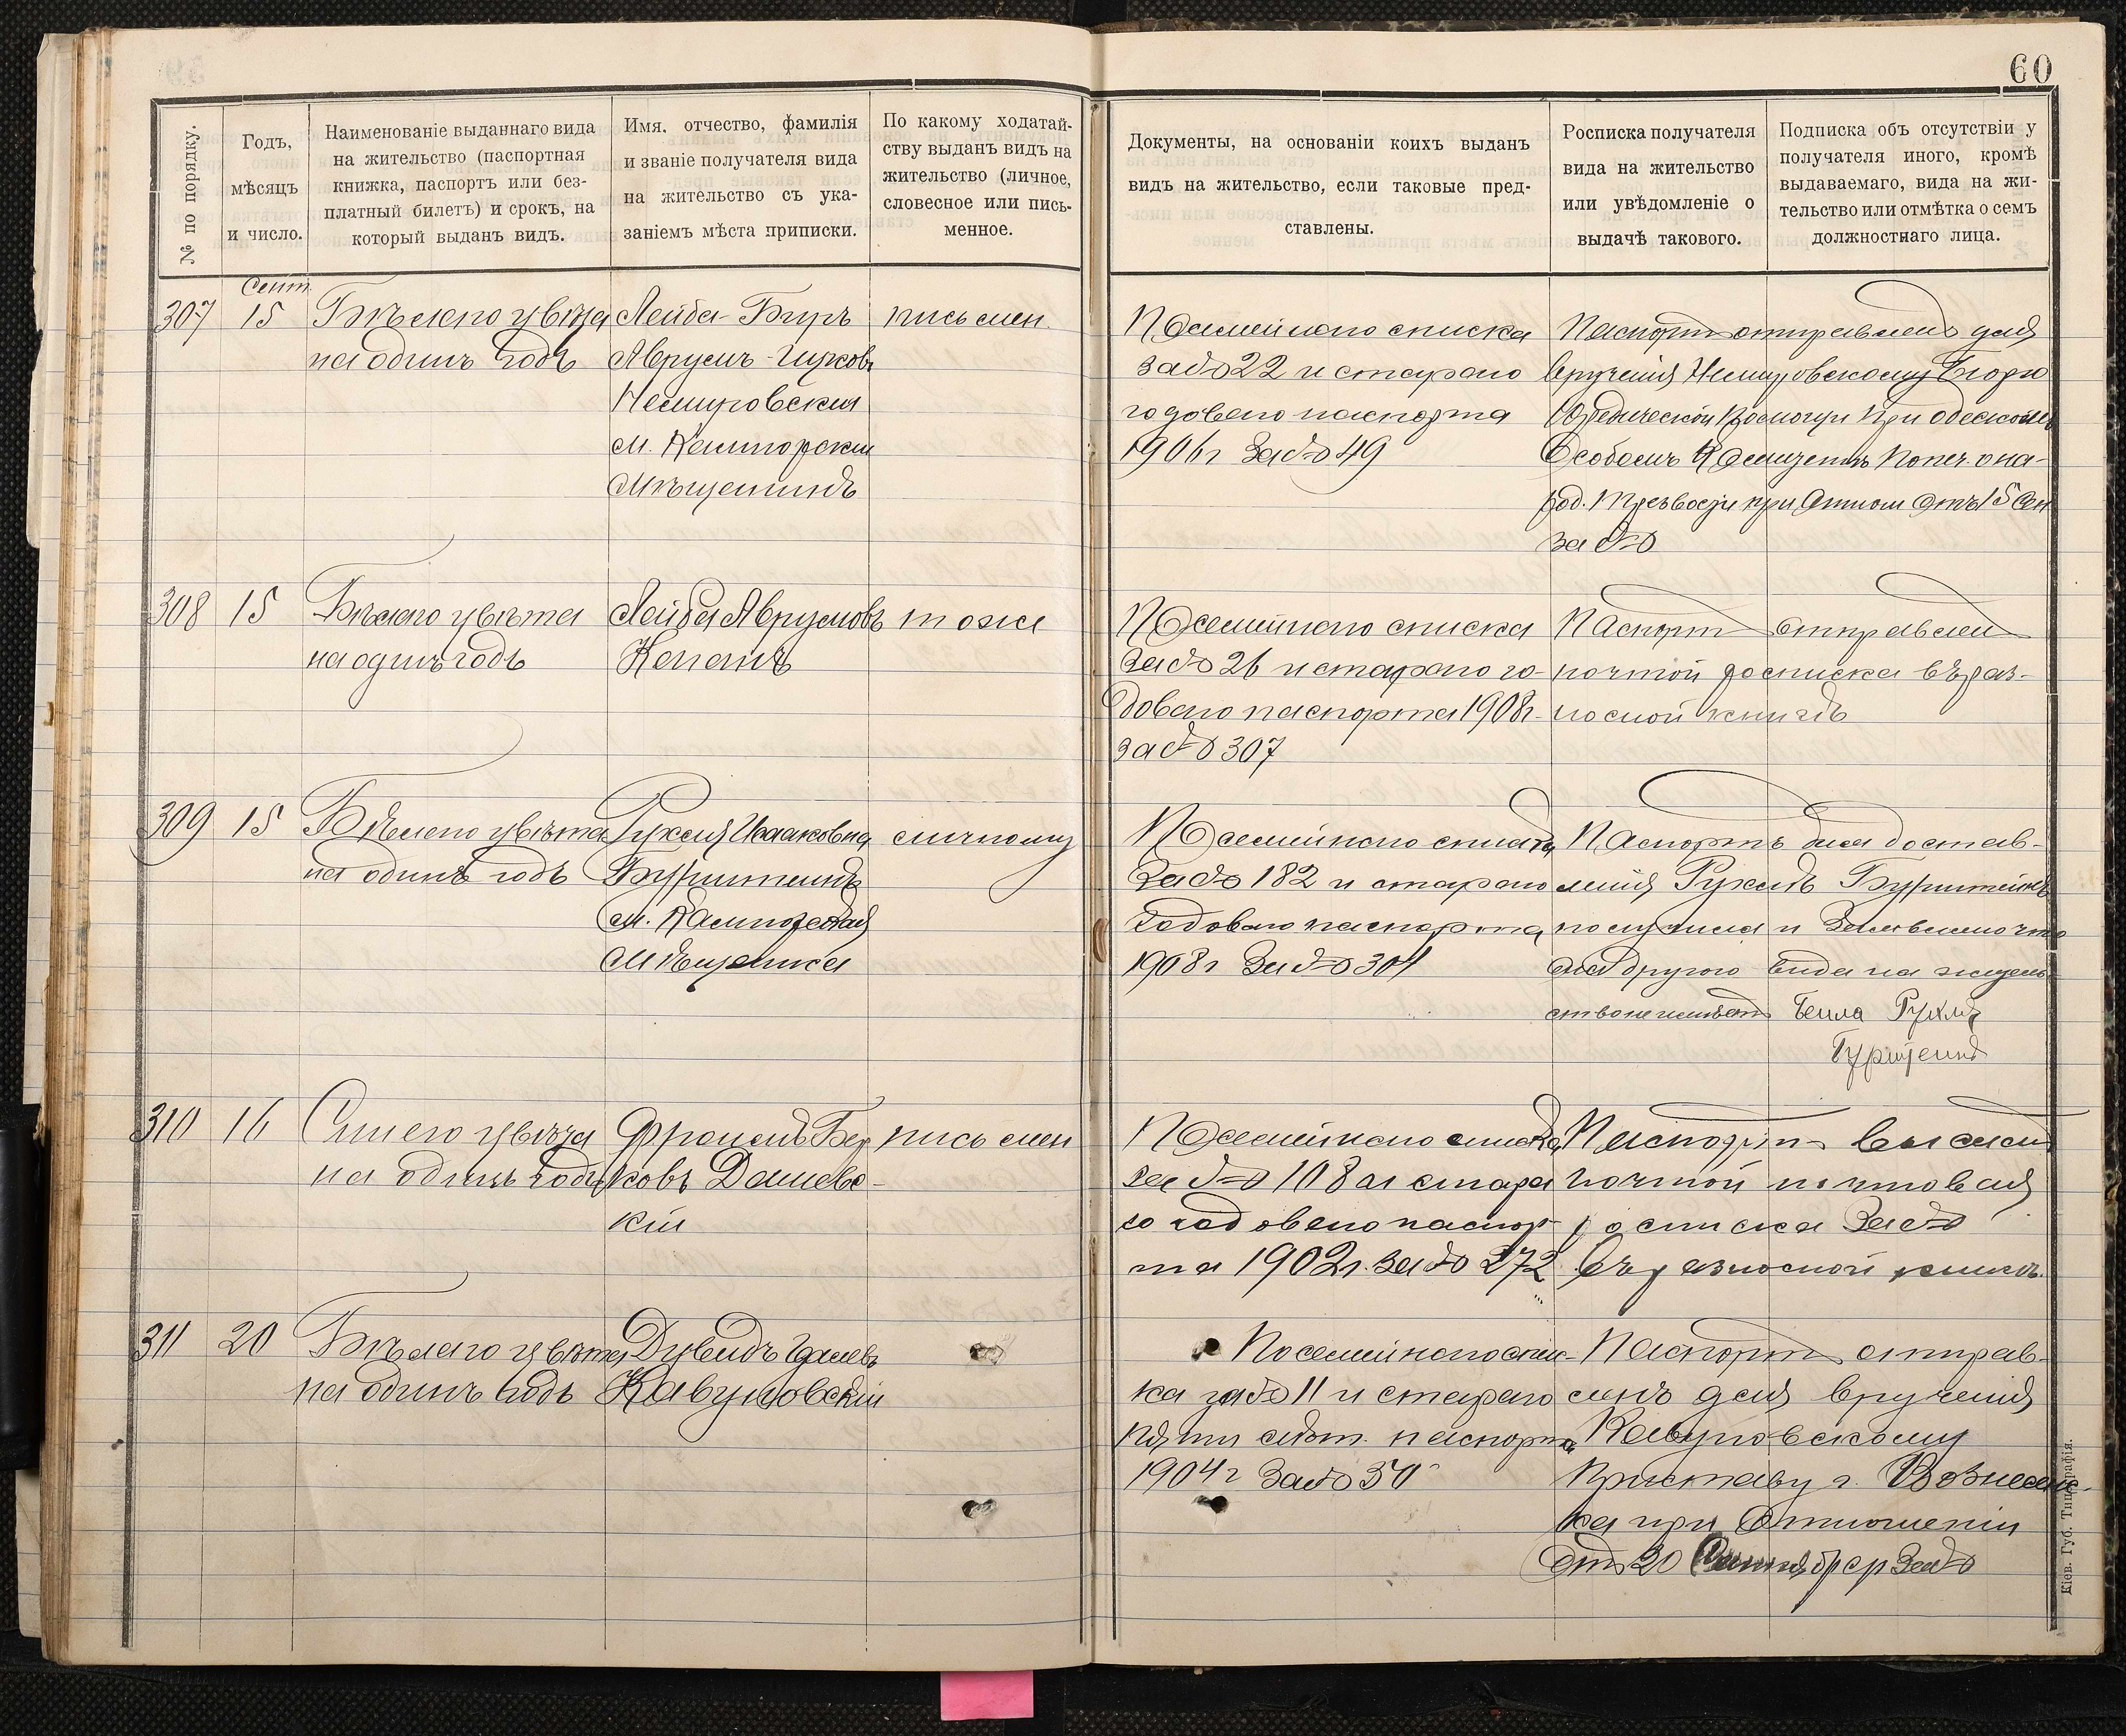 60
№ по порядку.
Годъ,
мѣсяцъ
и число.
Наименованіе выданнаго вида
на жительство (паспортная
книжка, паспортъ или без-
платный билетъ) и срокъ, на
который выданъ видъ.
Имя, отчество, фамилія
и званіе получателя вида
на жительство съ ука-
заніемъ мѣста приписки.
По какому ходатай-
ству выданъ видъ на
жительство (личное,
словесное или пись-
менное.
Документы, на основаніи коихъ выданъ
видъ на жительство, если таковые пред-
ставлены.
Росписка получателя
вида на жительство
или увѣдомленіе о
выдачѣ такового.
Подписка объ отсутствіи у
получателя иного, кромѣ
выдаваемаго, вида на жи-
тельство или отмѣтка о семъ
должностнаго лица.
Сент.
307
15
Бѣлаго цвѣта
на одинъ годъ
Лейба-Беръ
Аврумъ-Ицковъ
Немировскій
мѣщанинъ
письмен.
По семейному списку
за № 22 и стараго
годового паспорта
1906 г за № 49
Паспортъ отправленъ для
врученія Немировскому Бюро
Юридической помощи при одесском
Особомъ Комитетѣ Попеч. о на-
род. Трезвости при Отнош отъ 15 Сен
за №
308
15
Бѣлаго цвѣта
на одинъ годъ
Лейба Аврумовъ
тоже
По семейному списку
за № 26 и стараго го-
дового паспорта 1908 г.
за № 307
Паспортъ отправлен
почтой росписка въ раз-
носной книгѣ
309
15
Бѣлаго цвѣта
на одинъ годъ
Рухля Исааковна
Бурштейнъ
мѣщанка
личному
По семейному списку
за № 182 и стараго
годового паспорта
1908 г за № 304
Паспортъ для достав-
ленія Рухлѣ Бурштейнъ
получила и Заявляю что
она другого вида на житель-
ство не имѣетъ Бейла Рухля
Бурштейнъ
310
16
Синего цвѣта
на одинъ годъ
Фроимъ Бер
ковъ Дашевс-
кій
письмен
По семейному списку
за № 108 и стара
го годового паспор-
та 1902 г. за № 272
Паспортъ высланъ
почтой почтовая
росписка за №
въ разносной книгѣ.
311
20
Бѣлаго цвѣта
на одинъ годъ
Дувидъ
Кавуновскій
По семейному спис-
ка за № 11 и стараго
пяти лѣт. паспорта
1904 г за № 50
Паспортъ отправ-
ленъ для врученія
Кавуновскому
Приставу г. Вознесенс-
ка при Отношеніи
отъ 20 Сентября за №
Кіев. Губ. Типографія.